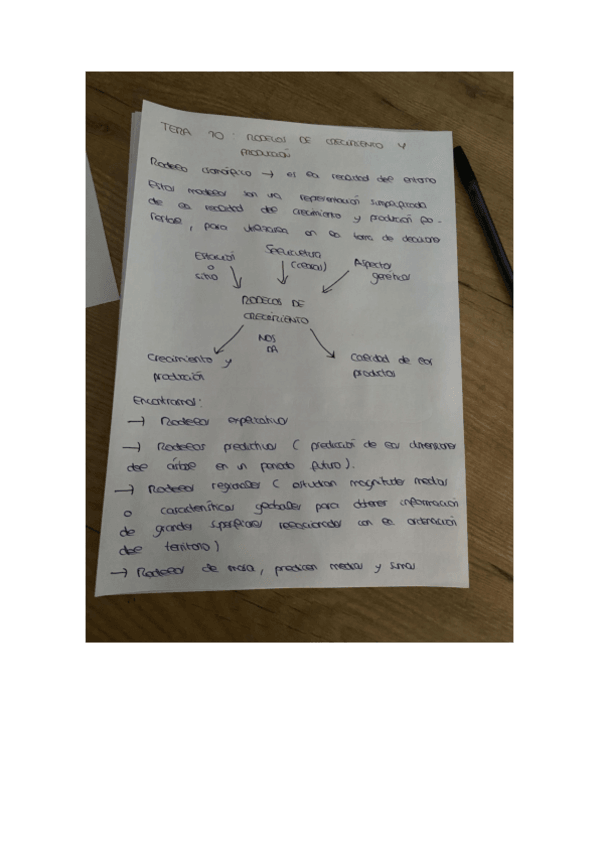 TEMA 10: MODELOS DE CRECIMIENTO Y
PRODUCCIÓN
Modelo científico → es la realidad del entorno
Estos modelos son una representación simplificada
de la realidad del crecimiento y producción fo-
restal, para utilizarla en la toma de decisiones
Estación
o
sitio
Selvicultura
(cortas)
Aspectos
genéticos
MODELOS DE
CRECIMIENTO
NOS
DA
Crecimiento y
producción
Calidad de los
productos
Encontramos:
→ Modelos explicativos
→ Modelos predictivos ( predicción de las dimensiones
del árbol en un periodo futuro).
→ Modelos regionales ( estudian magnitudes medias
o características globales para obtener información
de grandes superficies relacionadas con la ordenación
del territorio)
→ Modelos de masa, predicen medias y sumas